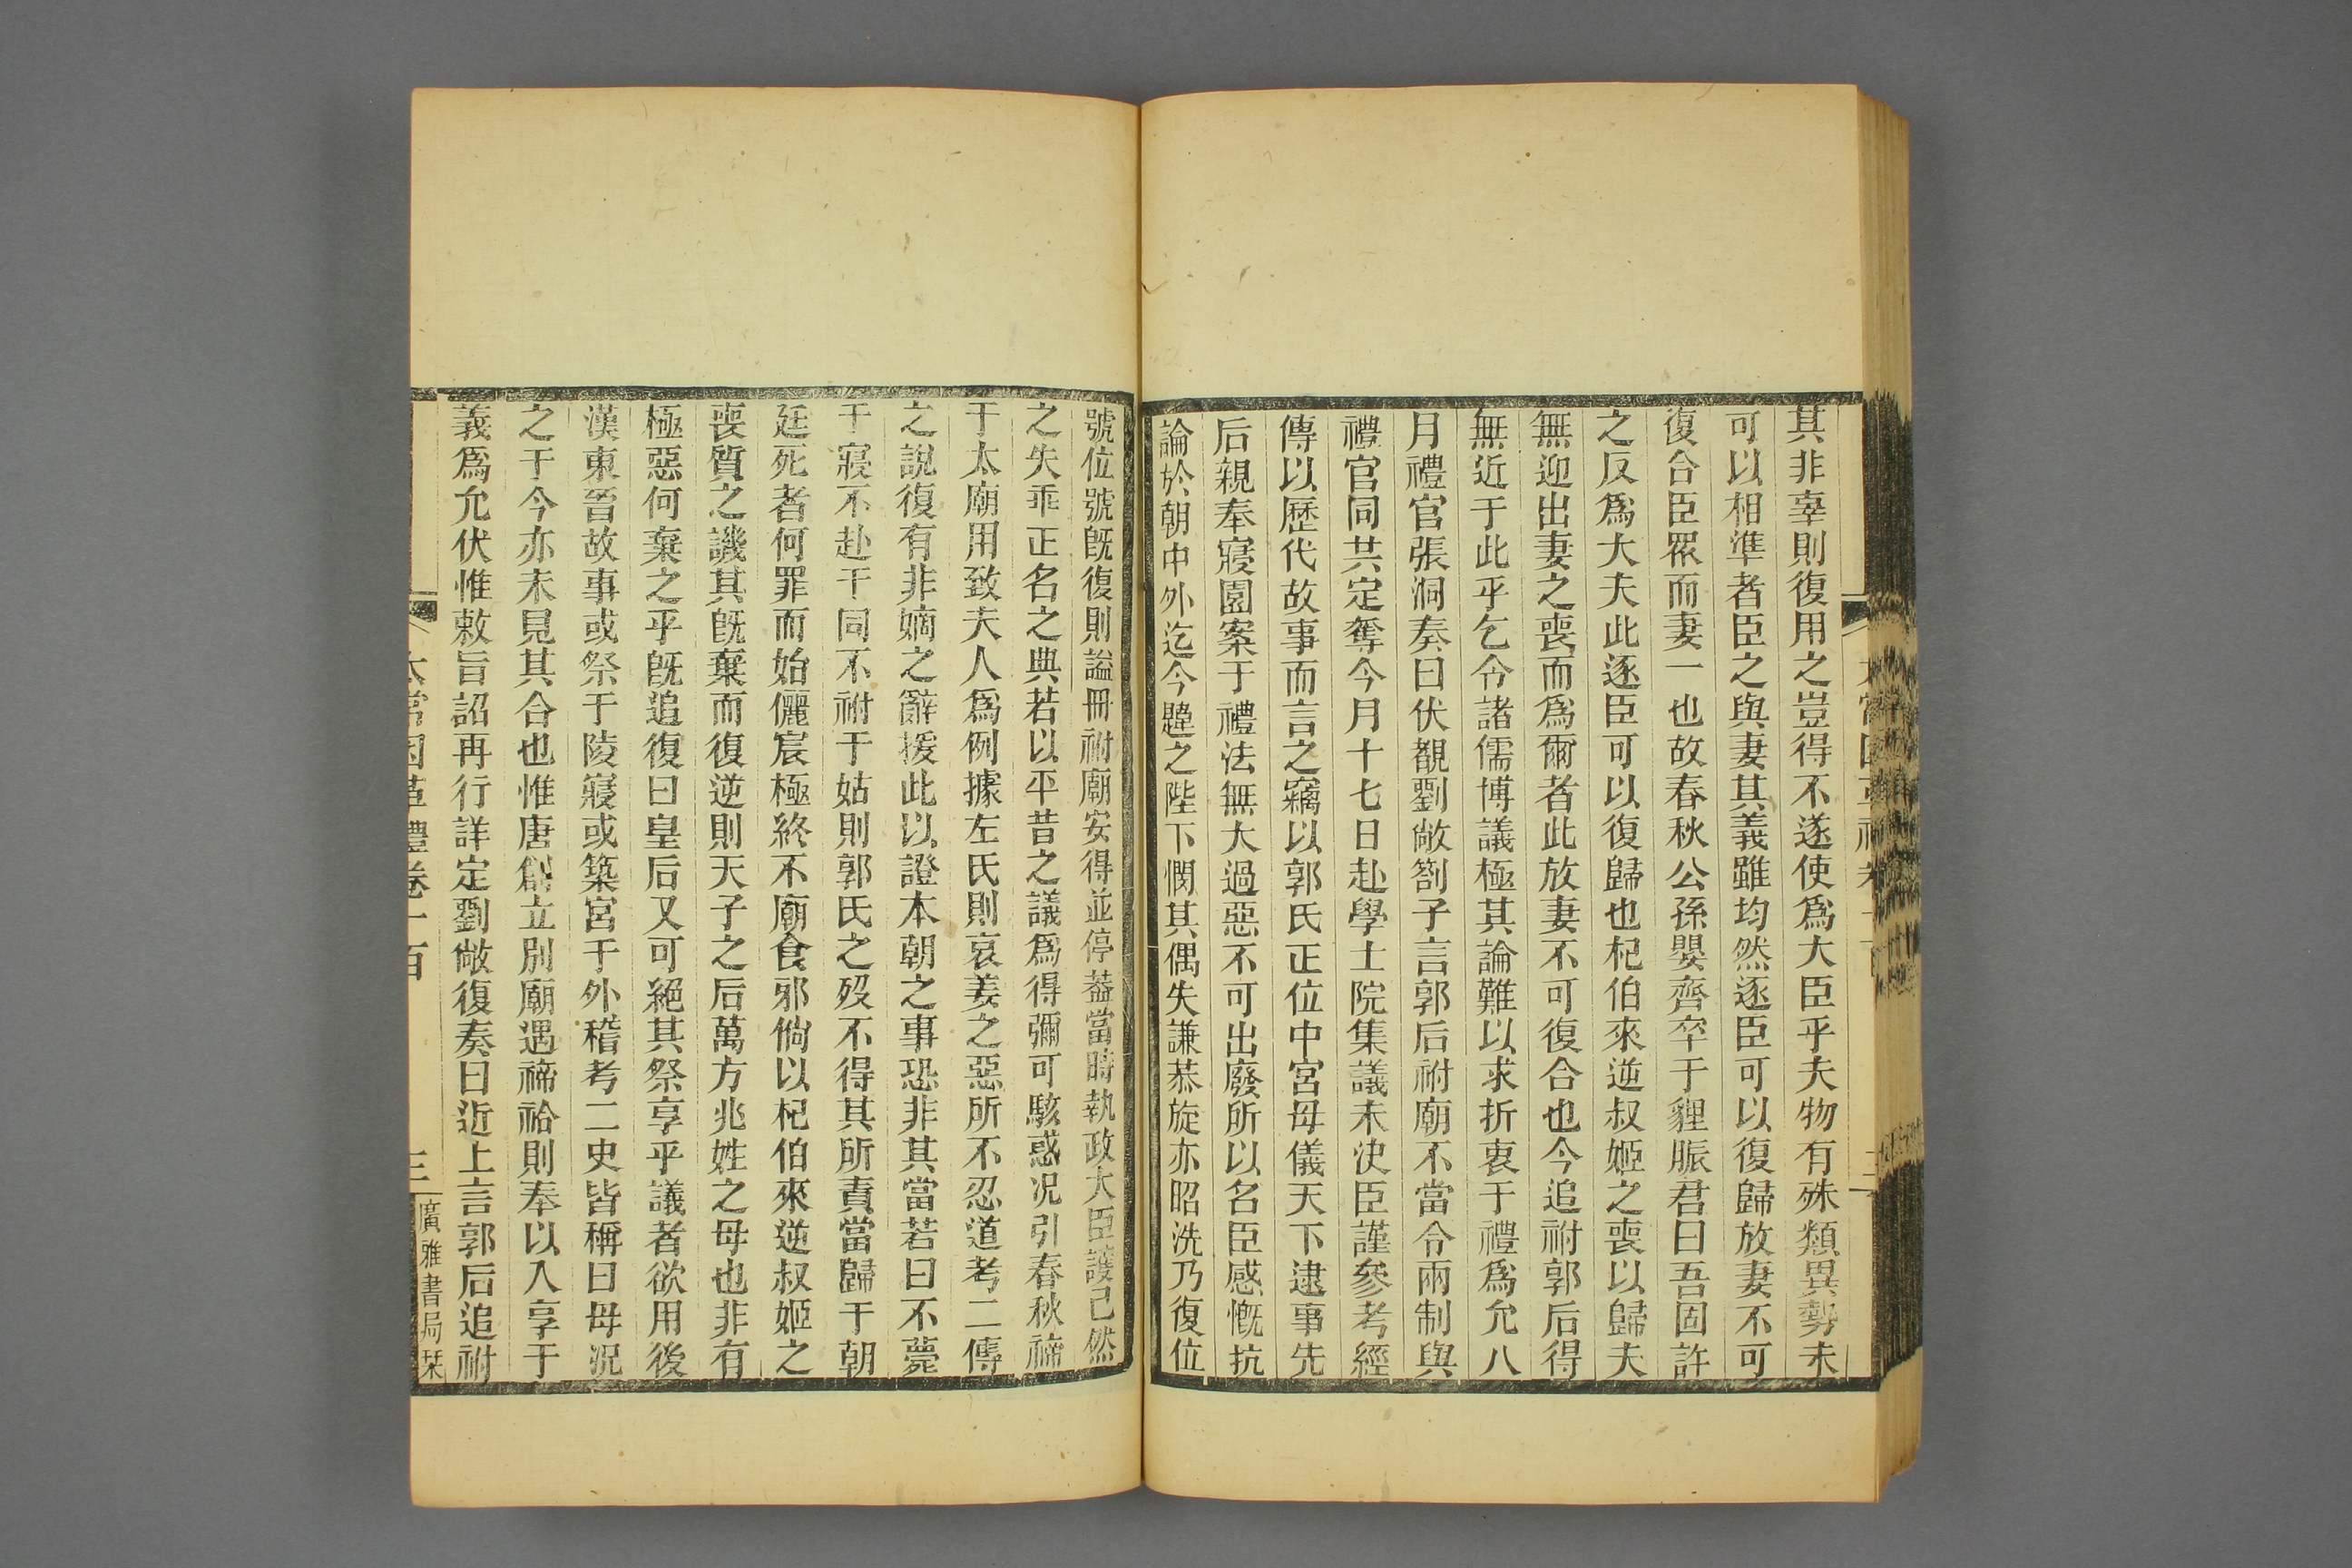 其非辜則復用之豈得不遂使爲大臣乎夫物有殊類異勢未
可以相準者臣之與妻其義雖均然逐臣可以復歸放妻不可
復合臣眾而妻一也故春秋公孫嬰齊卒于貍脤君曰吾固許
之反爲大夫此逐臣可以復歸也杞伯來逆叔姬之喪以歸夫
無迎出妻之喪而爲爾者此放妻不可復合也今追祔郭后得
無近于此乎乞令諸儒博議極其論難以求折衷于禮爲允八
月禮官張洞奏曰伏覩劉敞劄子言郭后祔廟不當令兩制與
禮官同共定奪今月十七日赴學士院集議未決臣謹參考經
傳以歷代故事而言之竊以郭氏正位中宮母儀天下逮事先
后親奉寢園案于禮法無大過惡不可出廢所以名臣感慨抗
論於朝中外迄今韙之陛下憫其偶失謙恭旋亦昭洗乃復位
號位號旣復則謚冊祔廟安得並停葢當時執政大臣護已然
之失乖正名之典若以平昔之議爲得彌可駭惑况引春秋禘
于太廟用致夫人爲例據左氏則哀姜之惡所不忍道考二傳
之說復有非嫡之辭援此以證本朝之事恐非其當若曰不薨
于寢不赴于同不祔于姑則郭氏之歿不得其所責當歸于朝
廷死者何罪而始儷宸極終不廟食邪倘以杞伯來逆叔姬之
喪質之譏其旣棄而復逆則天子之后萬方兆姓之母也非有
極惡何棄之乎旣追復曰皇后又可絕其祭享乎議者欲用後
漢東晉故事或祭于陵寢或築宮于外稽考二史皆稱曰母況
之于今亦未見其合也惟唐創立別廟遇禘祫則奉以入享于
義爲允伏惟敕旨詔再行詳定劉敞復奏曰近上言郭后追祔
太常因革禮卷一百
三
廣雅書局栞